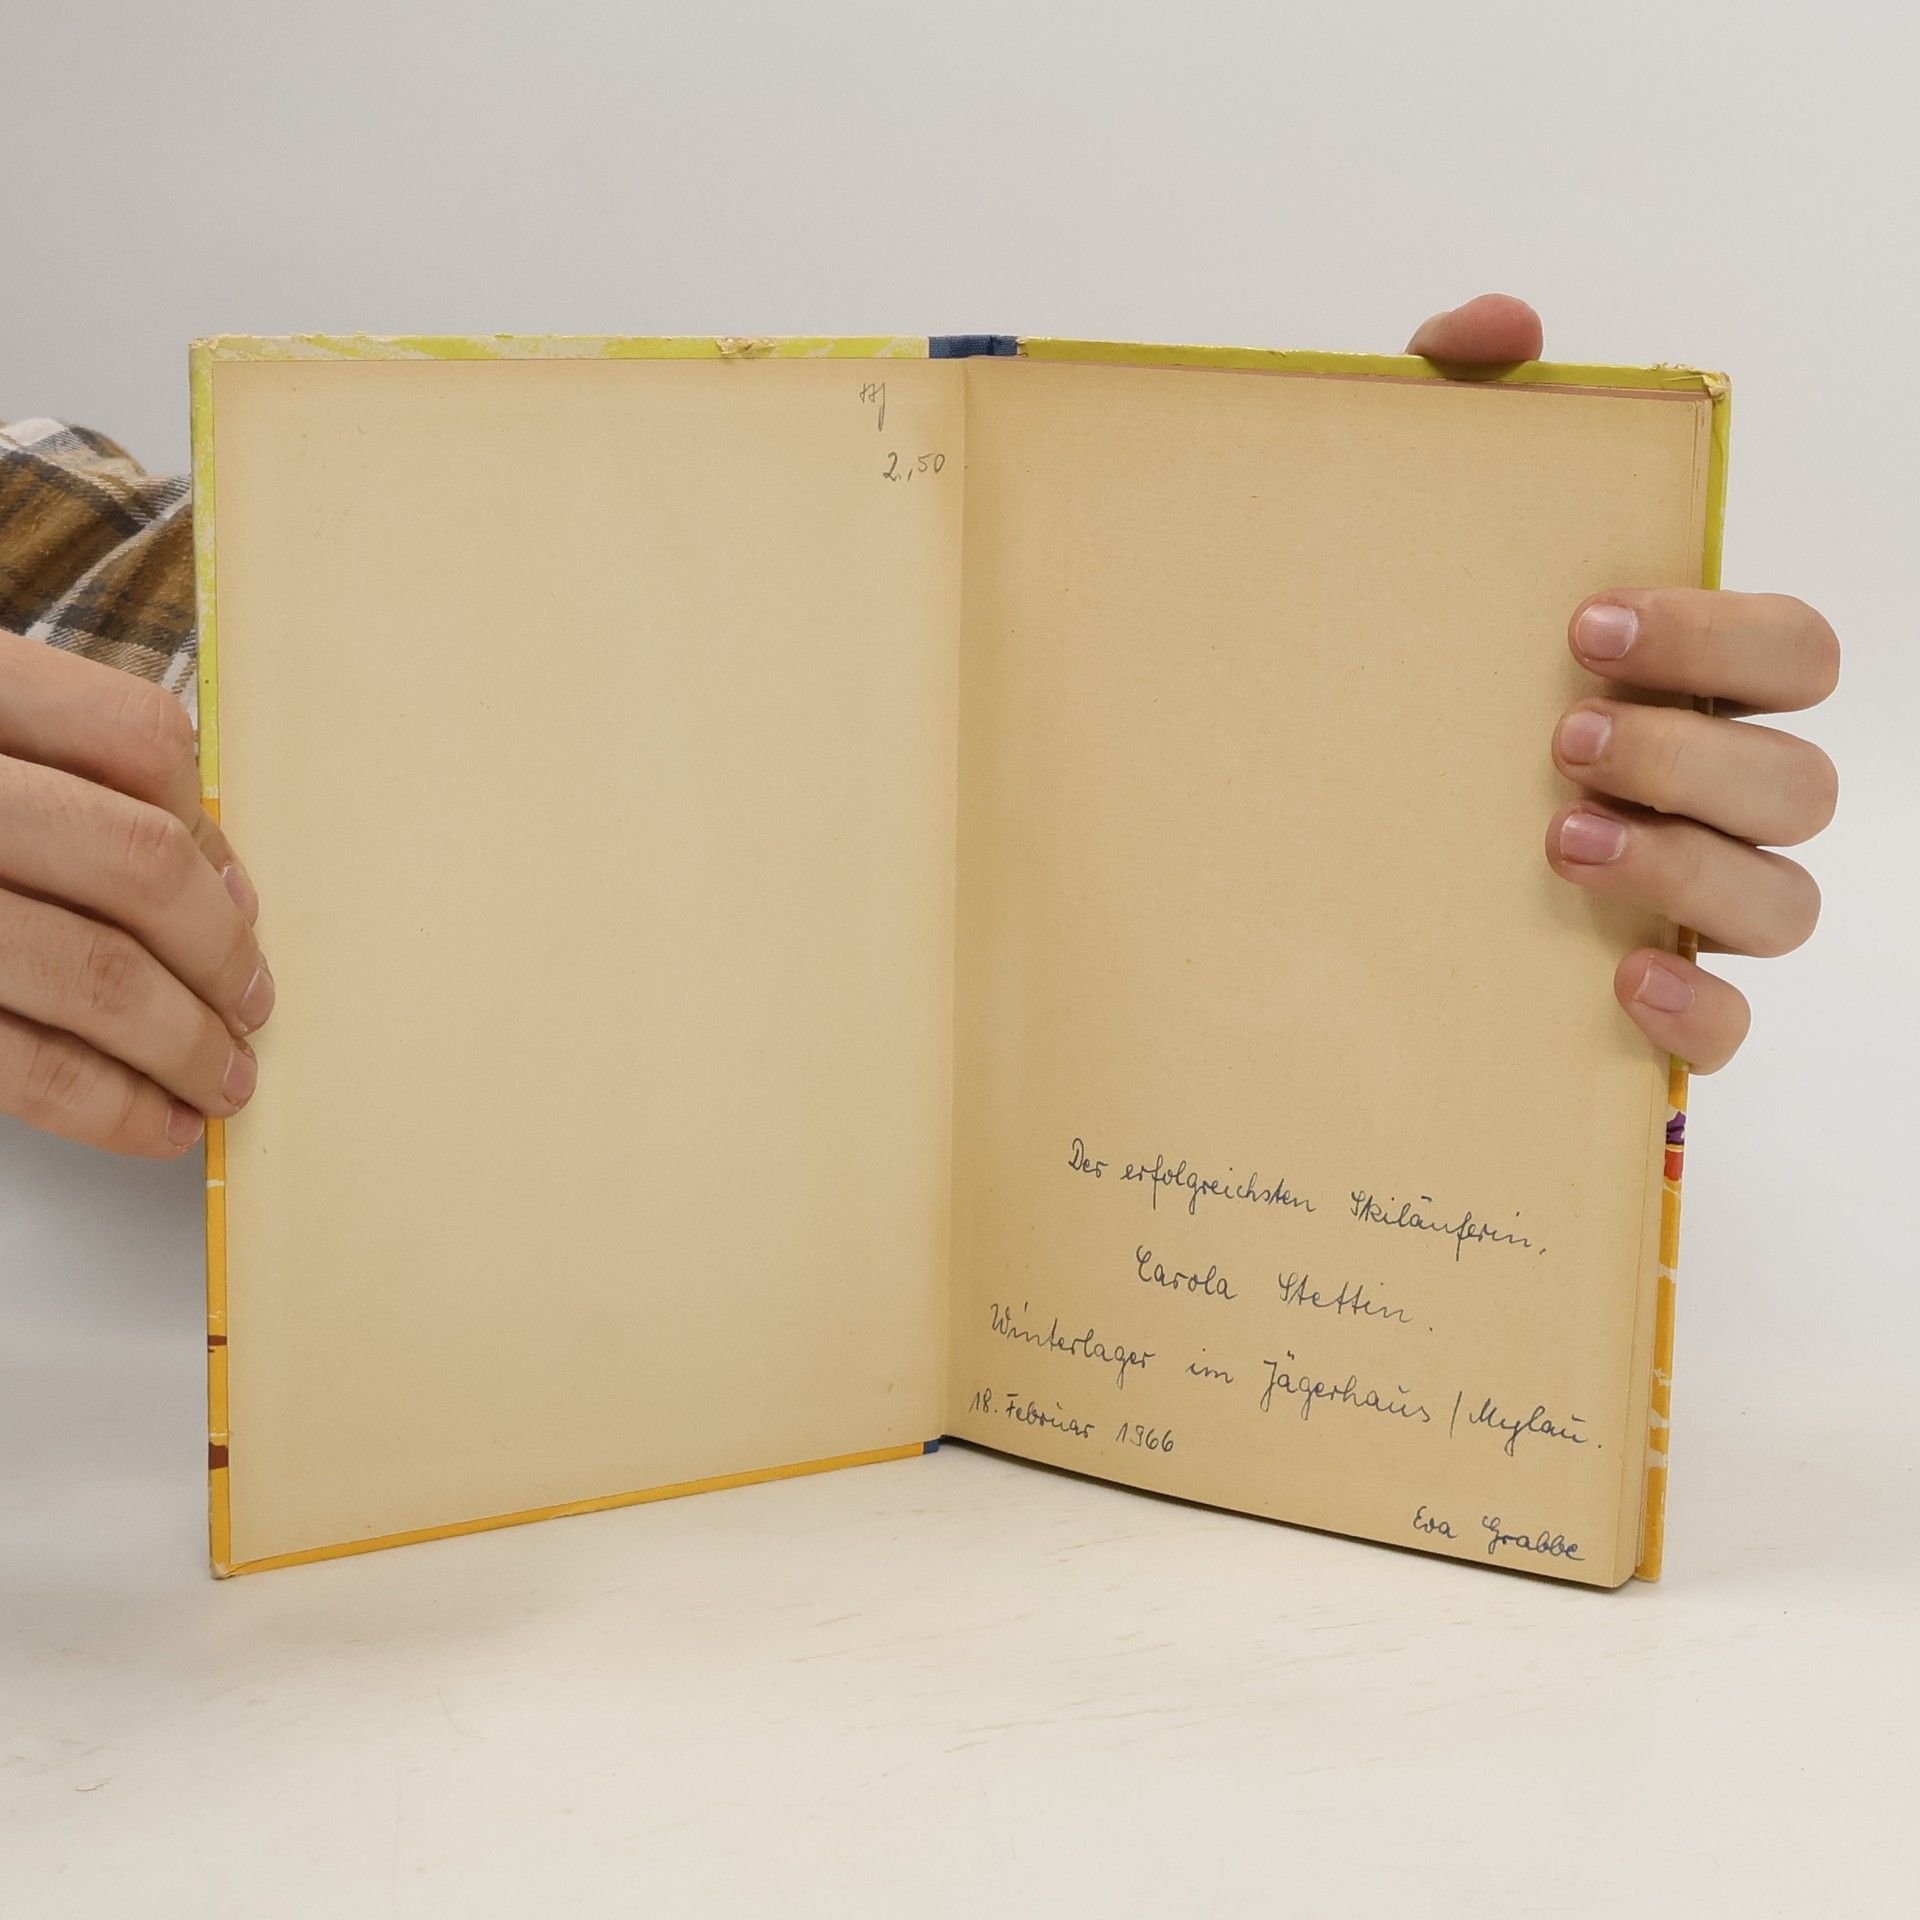 2,50
Der erfolgreichsten Skiläuferin,
Carola Stettin.
Winterlager im Jägerhaus / Mylau.
18. Februar 1966
Eva Grabbe